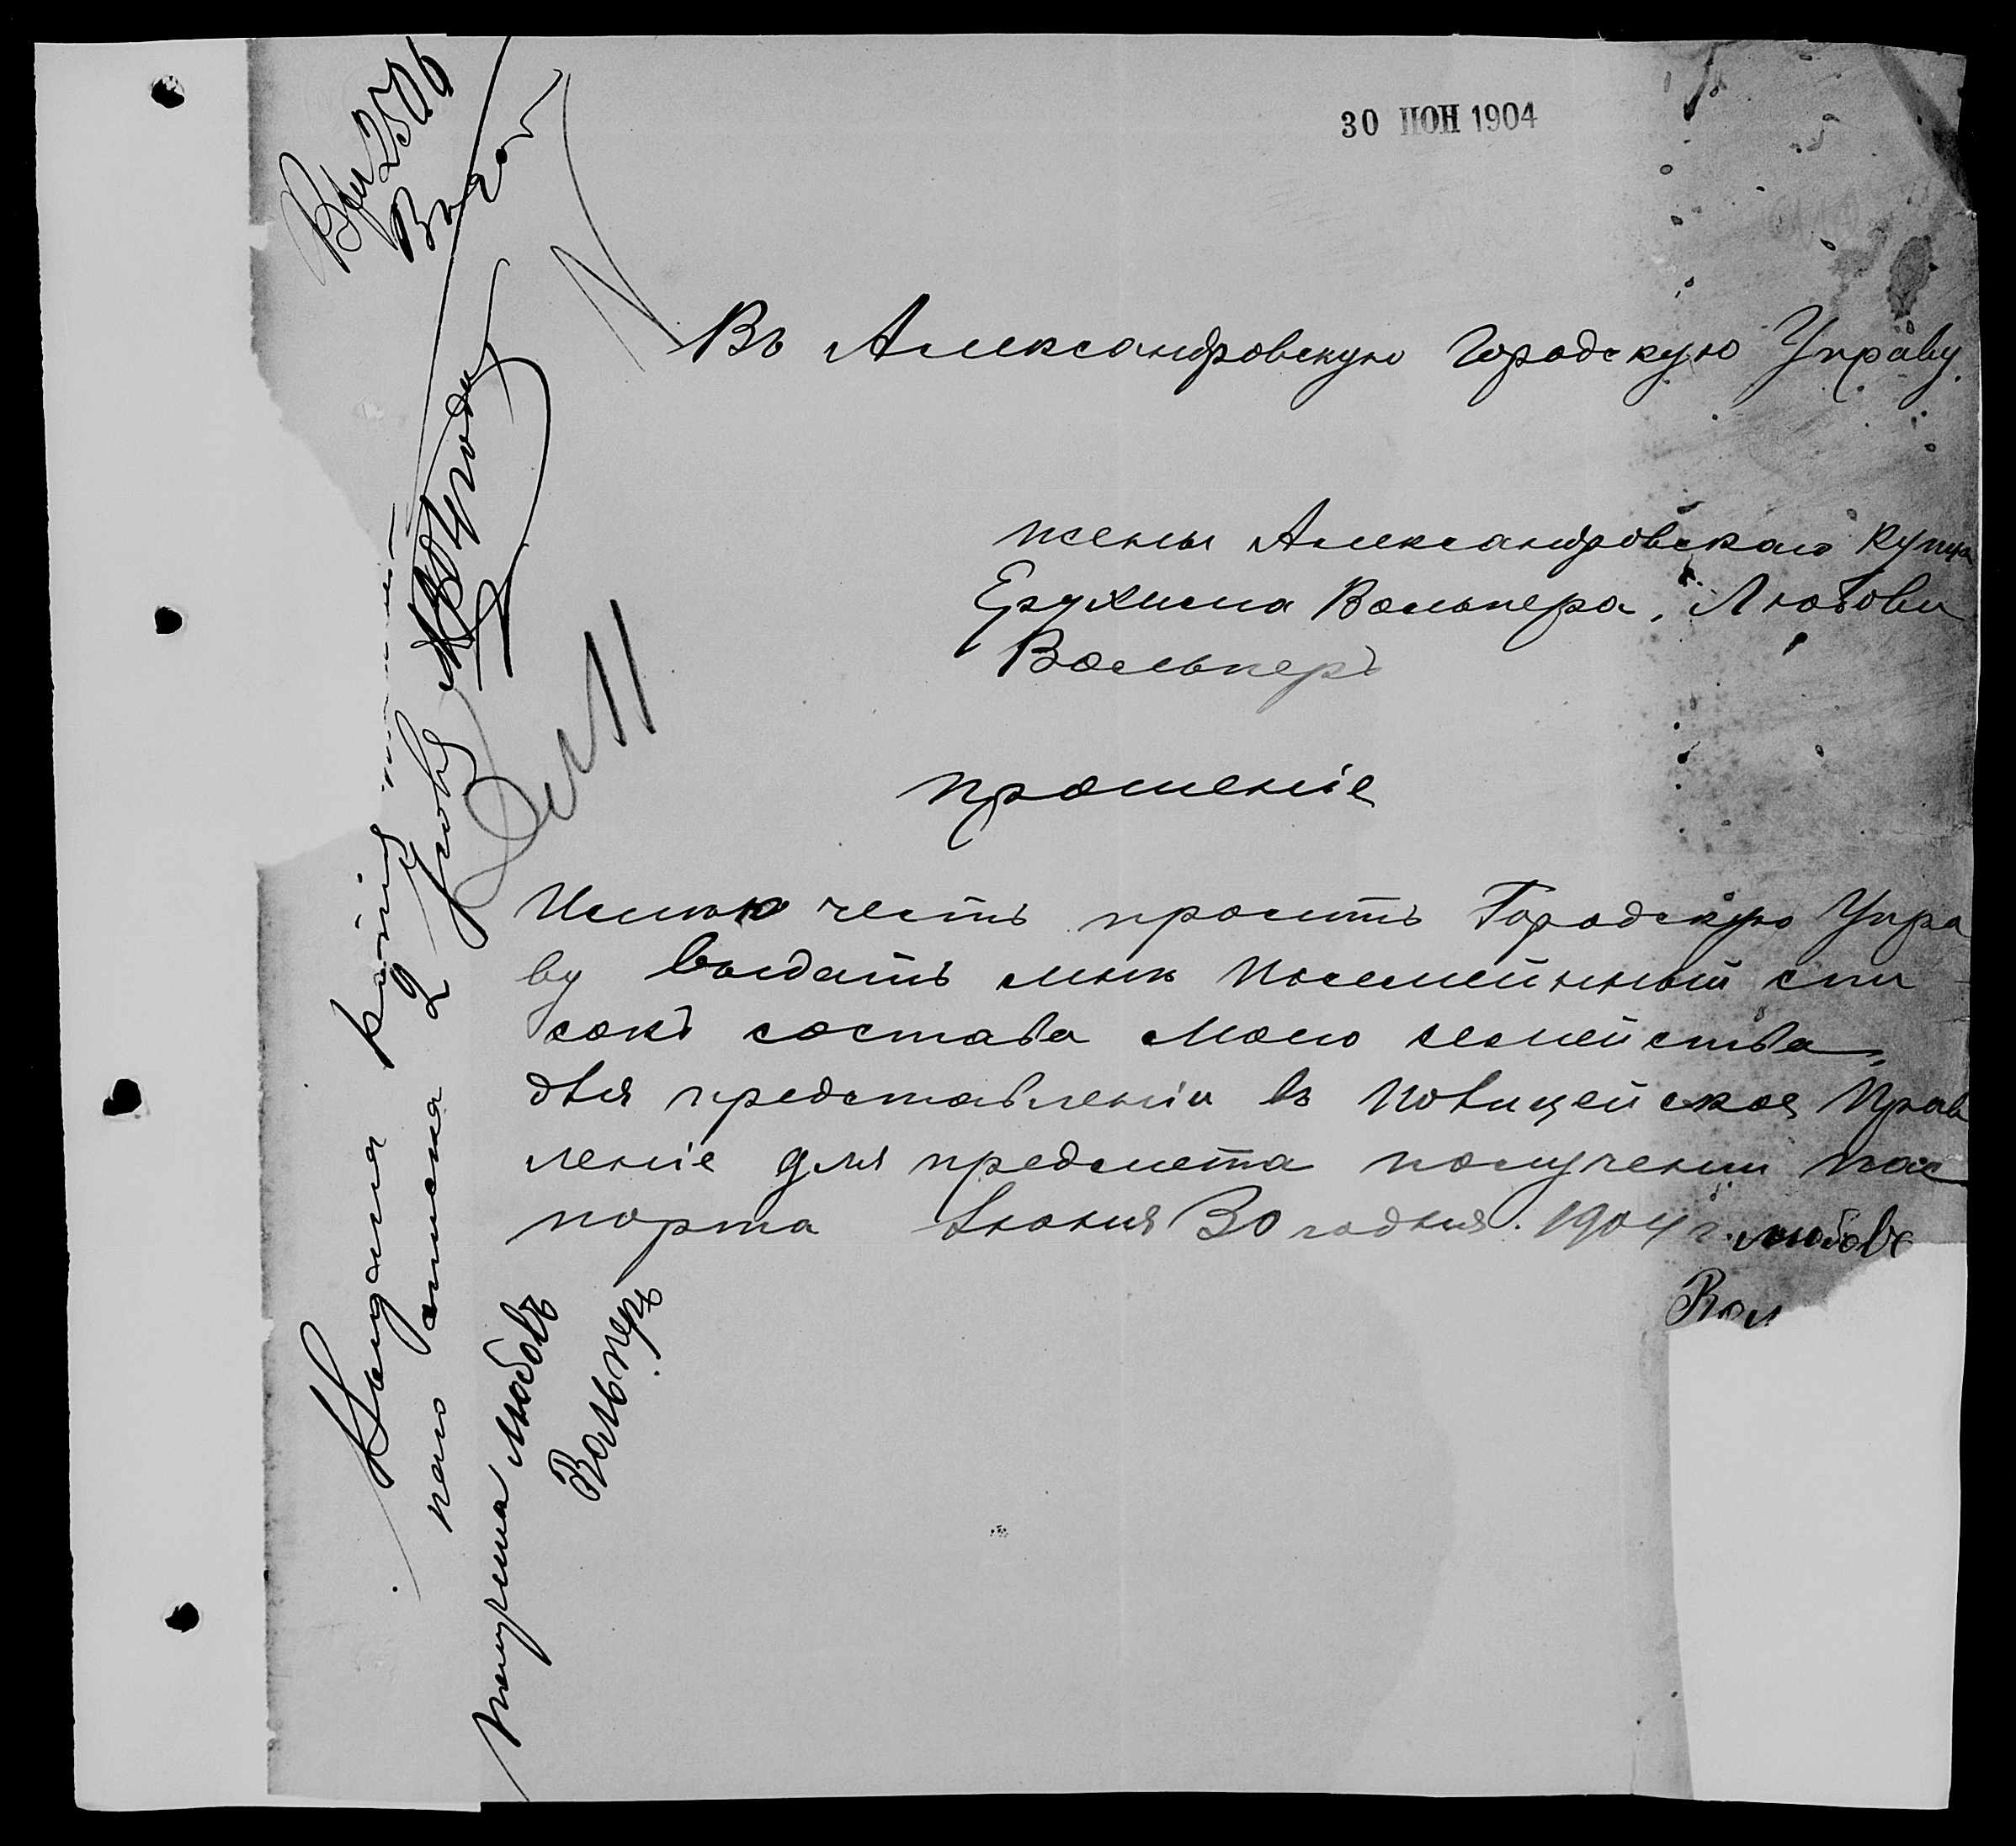 30 ІЮН 1904
Въ Александровскую Городскую Управу.
жены Александровскаго купца
Ерухима Вольпера, Любови
Вольперъ
прошеніе
Имѣю честь просить Городскую Упра
ву выдать мнѣ посемейный спи
сокъ состава моего семейства,
для представленіи въ Полицейское Прав
леніе для предмета полученіи пас
порта Іюния 30 годния. 1904 г. Любовь
Вол
Вх 2506
Выдана копія
2 Іюля
списка
получила Любовь
Вольперъ